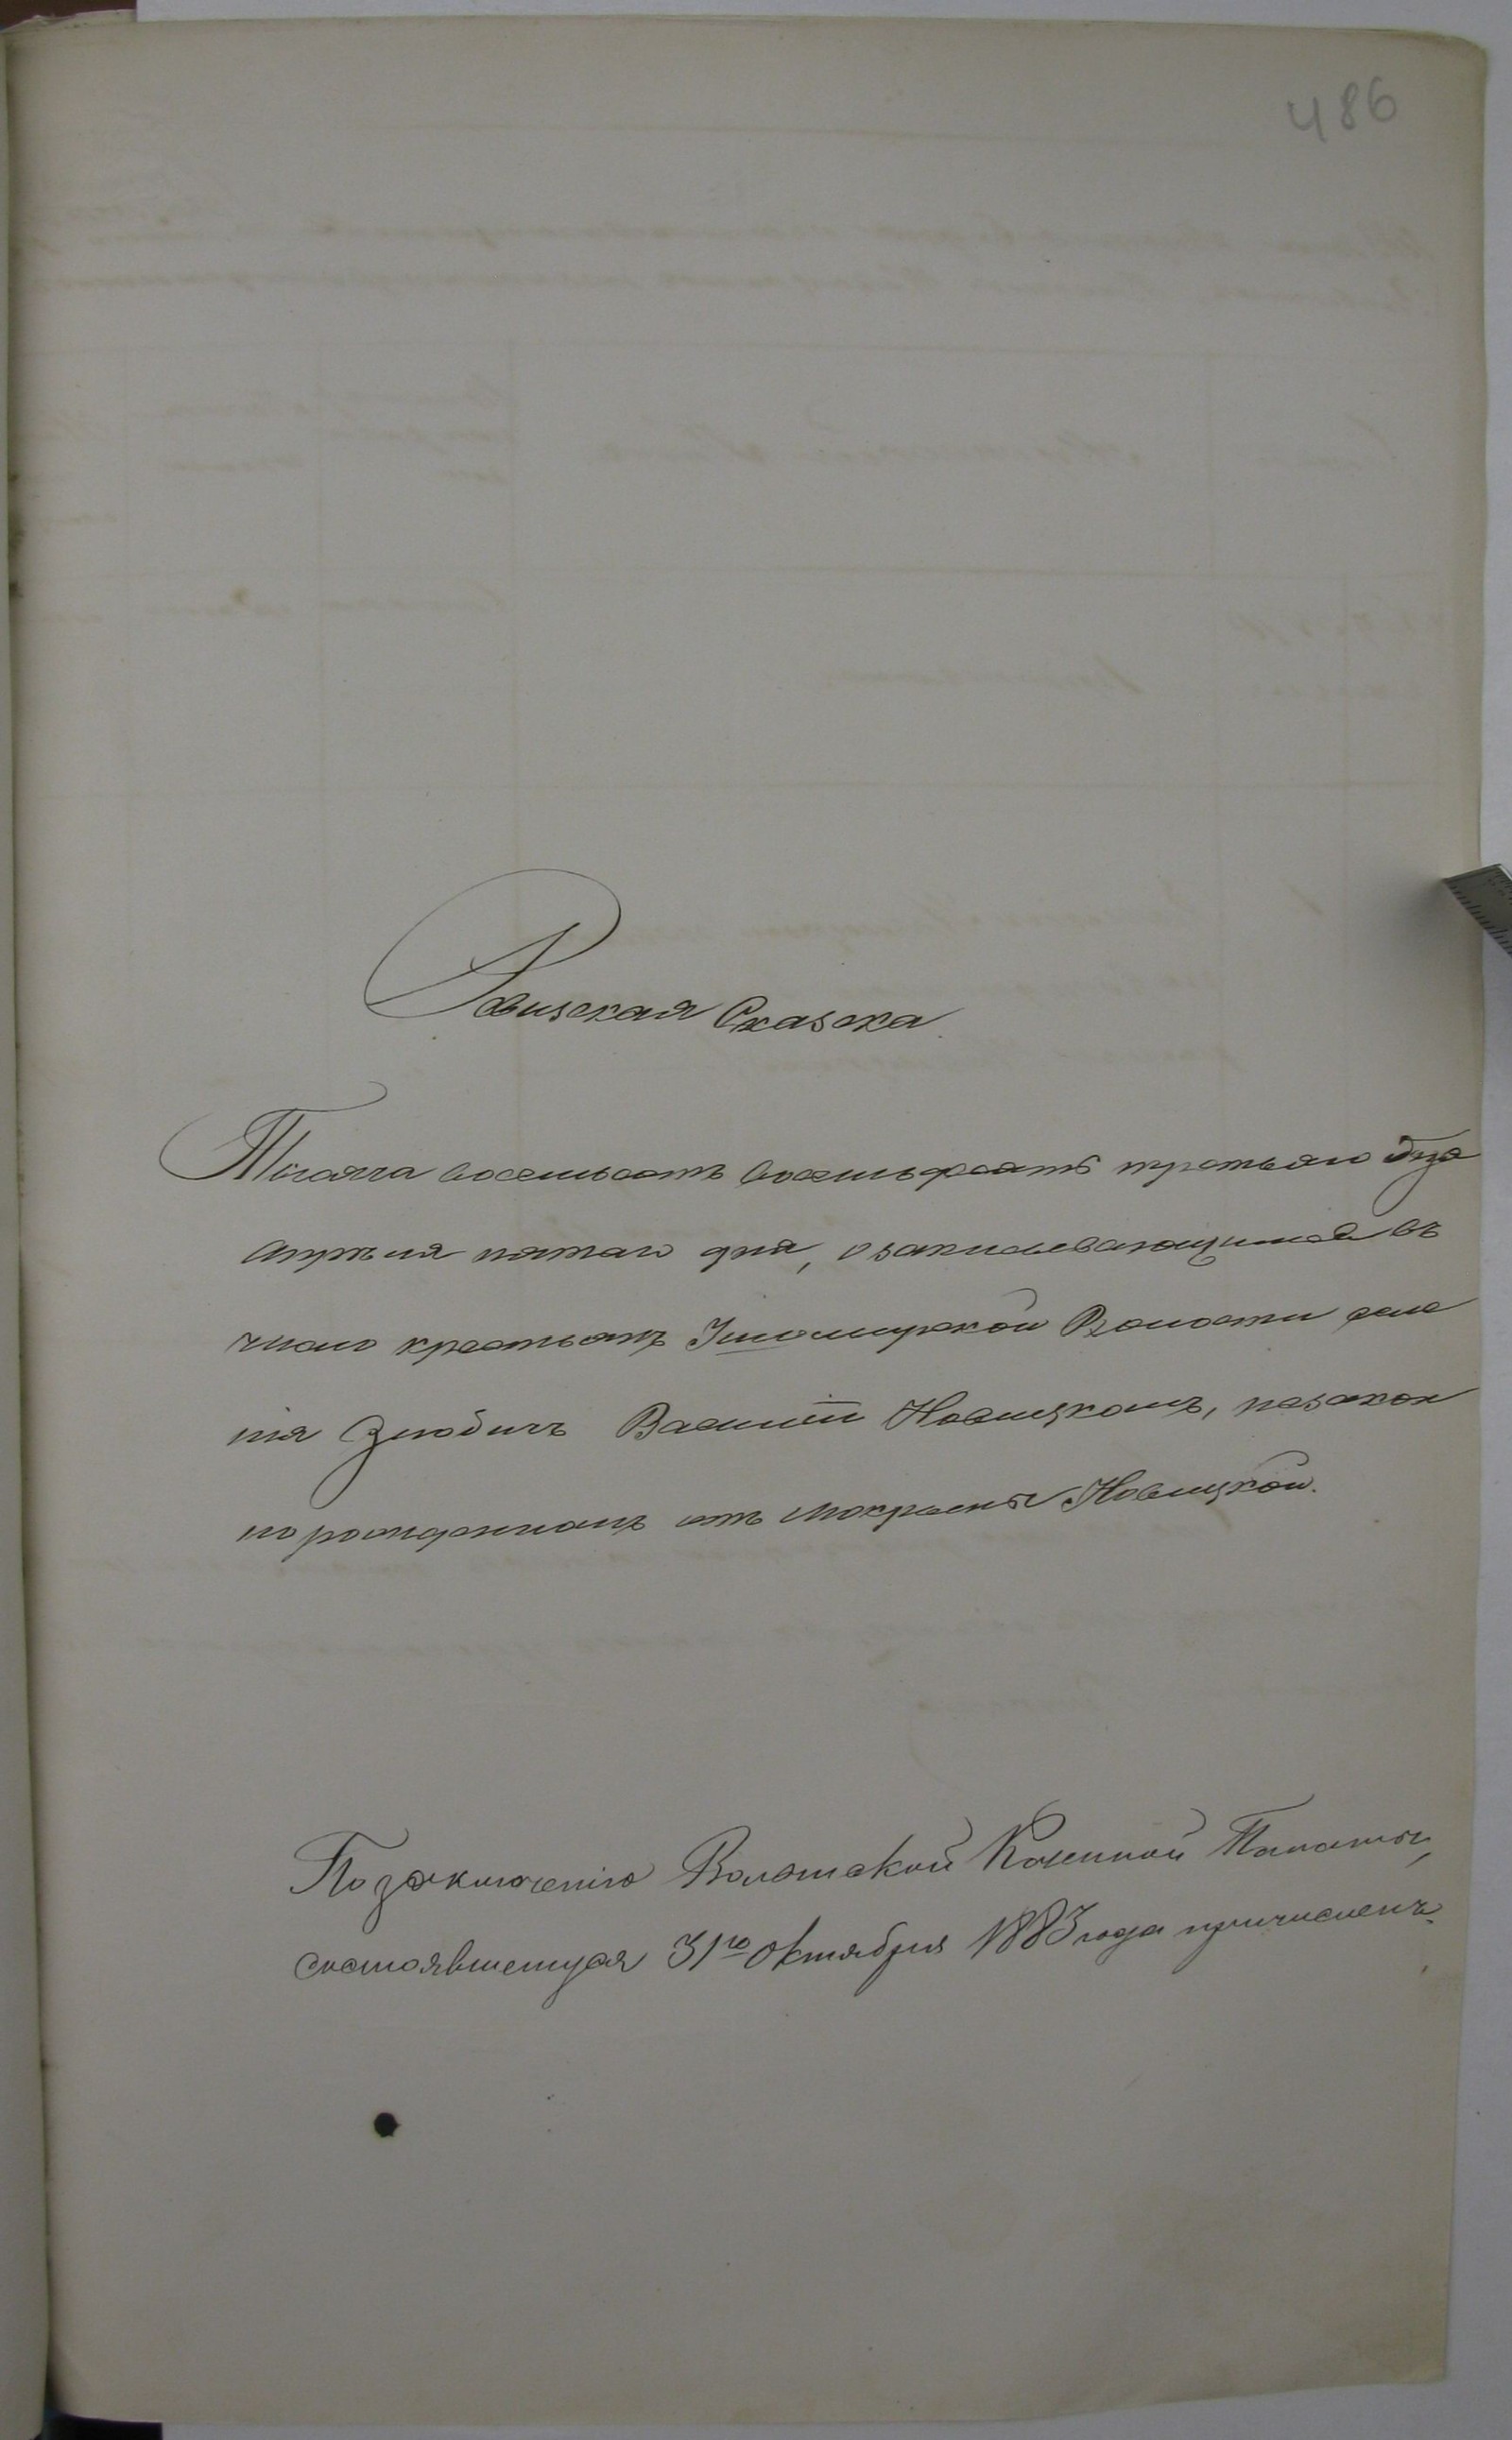 486
Ревизская Сказка
Тысяча восемьсотъ восемьдесятъ третьяго года
Апрѣля пятаго дня, о записывающимся въ
число крестьянъ Ушомирской Волости селе
нія Злобичъ Василіи Новицкомъ, незакон
но рожденномъ отъ Мокрыны Новицкой.
По заключенію Волынской Казенной Палаты,
состоявшемуся 31го Октября 1883 года причисленъ.